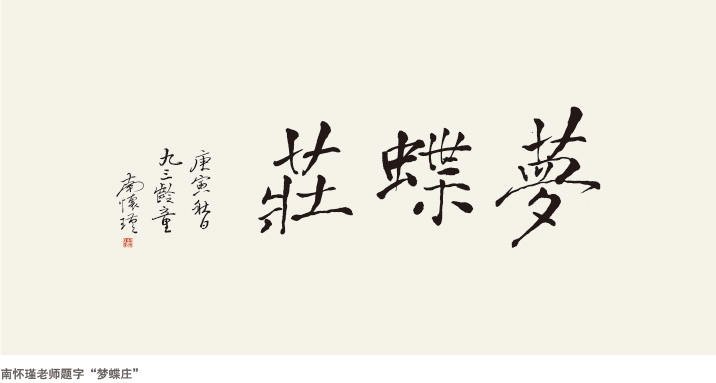 夢蝶莊
庚寅秋日
九三齡童
南懷瑾
南怀瑾老师题字“梦蝶庄”